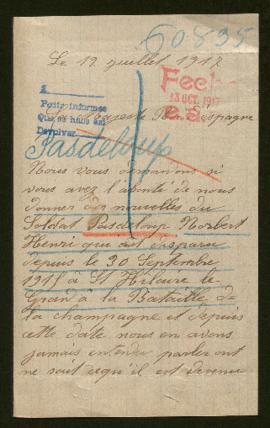 60835
Le 12 juillet 1917
Fech
13 OCT. 1917
A
Para informes
Que se han de
Devolver
Majesté Roi d'Espagne
Pasdeloup
Nous vous demandons si
vous avez la bonté de nous
donner des nouvelles du
Soldat Pasdeloup Norbert
Henri qui est disparu
depuis le 30 Septembre
1915 à St Hilaire le
Grand à la Bataille de
la champagne et depuis
cette date nous en avons
jamais entendu parler ont
ne sait ce qu'il est devenu